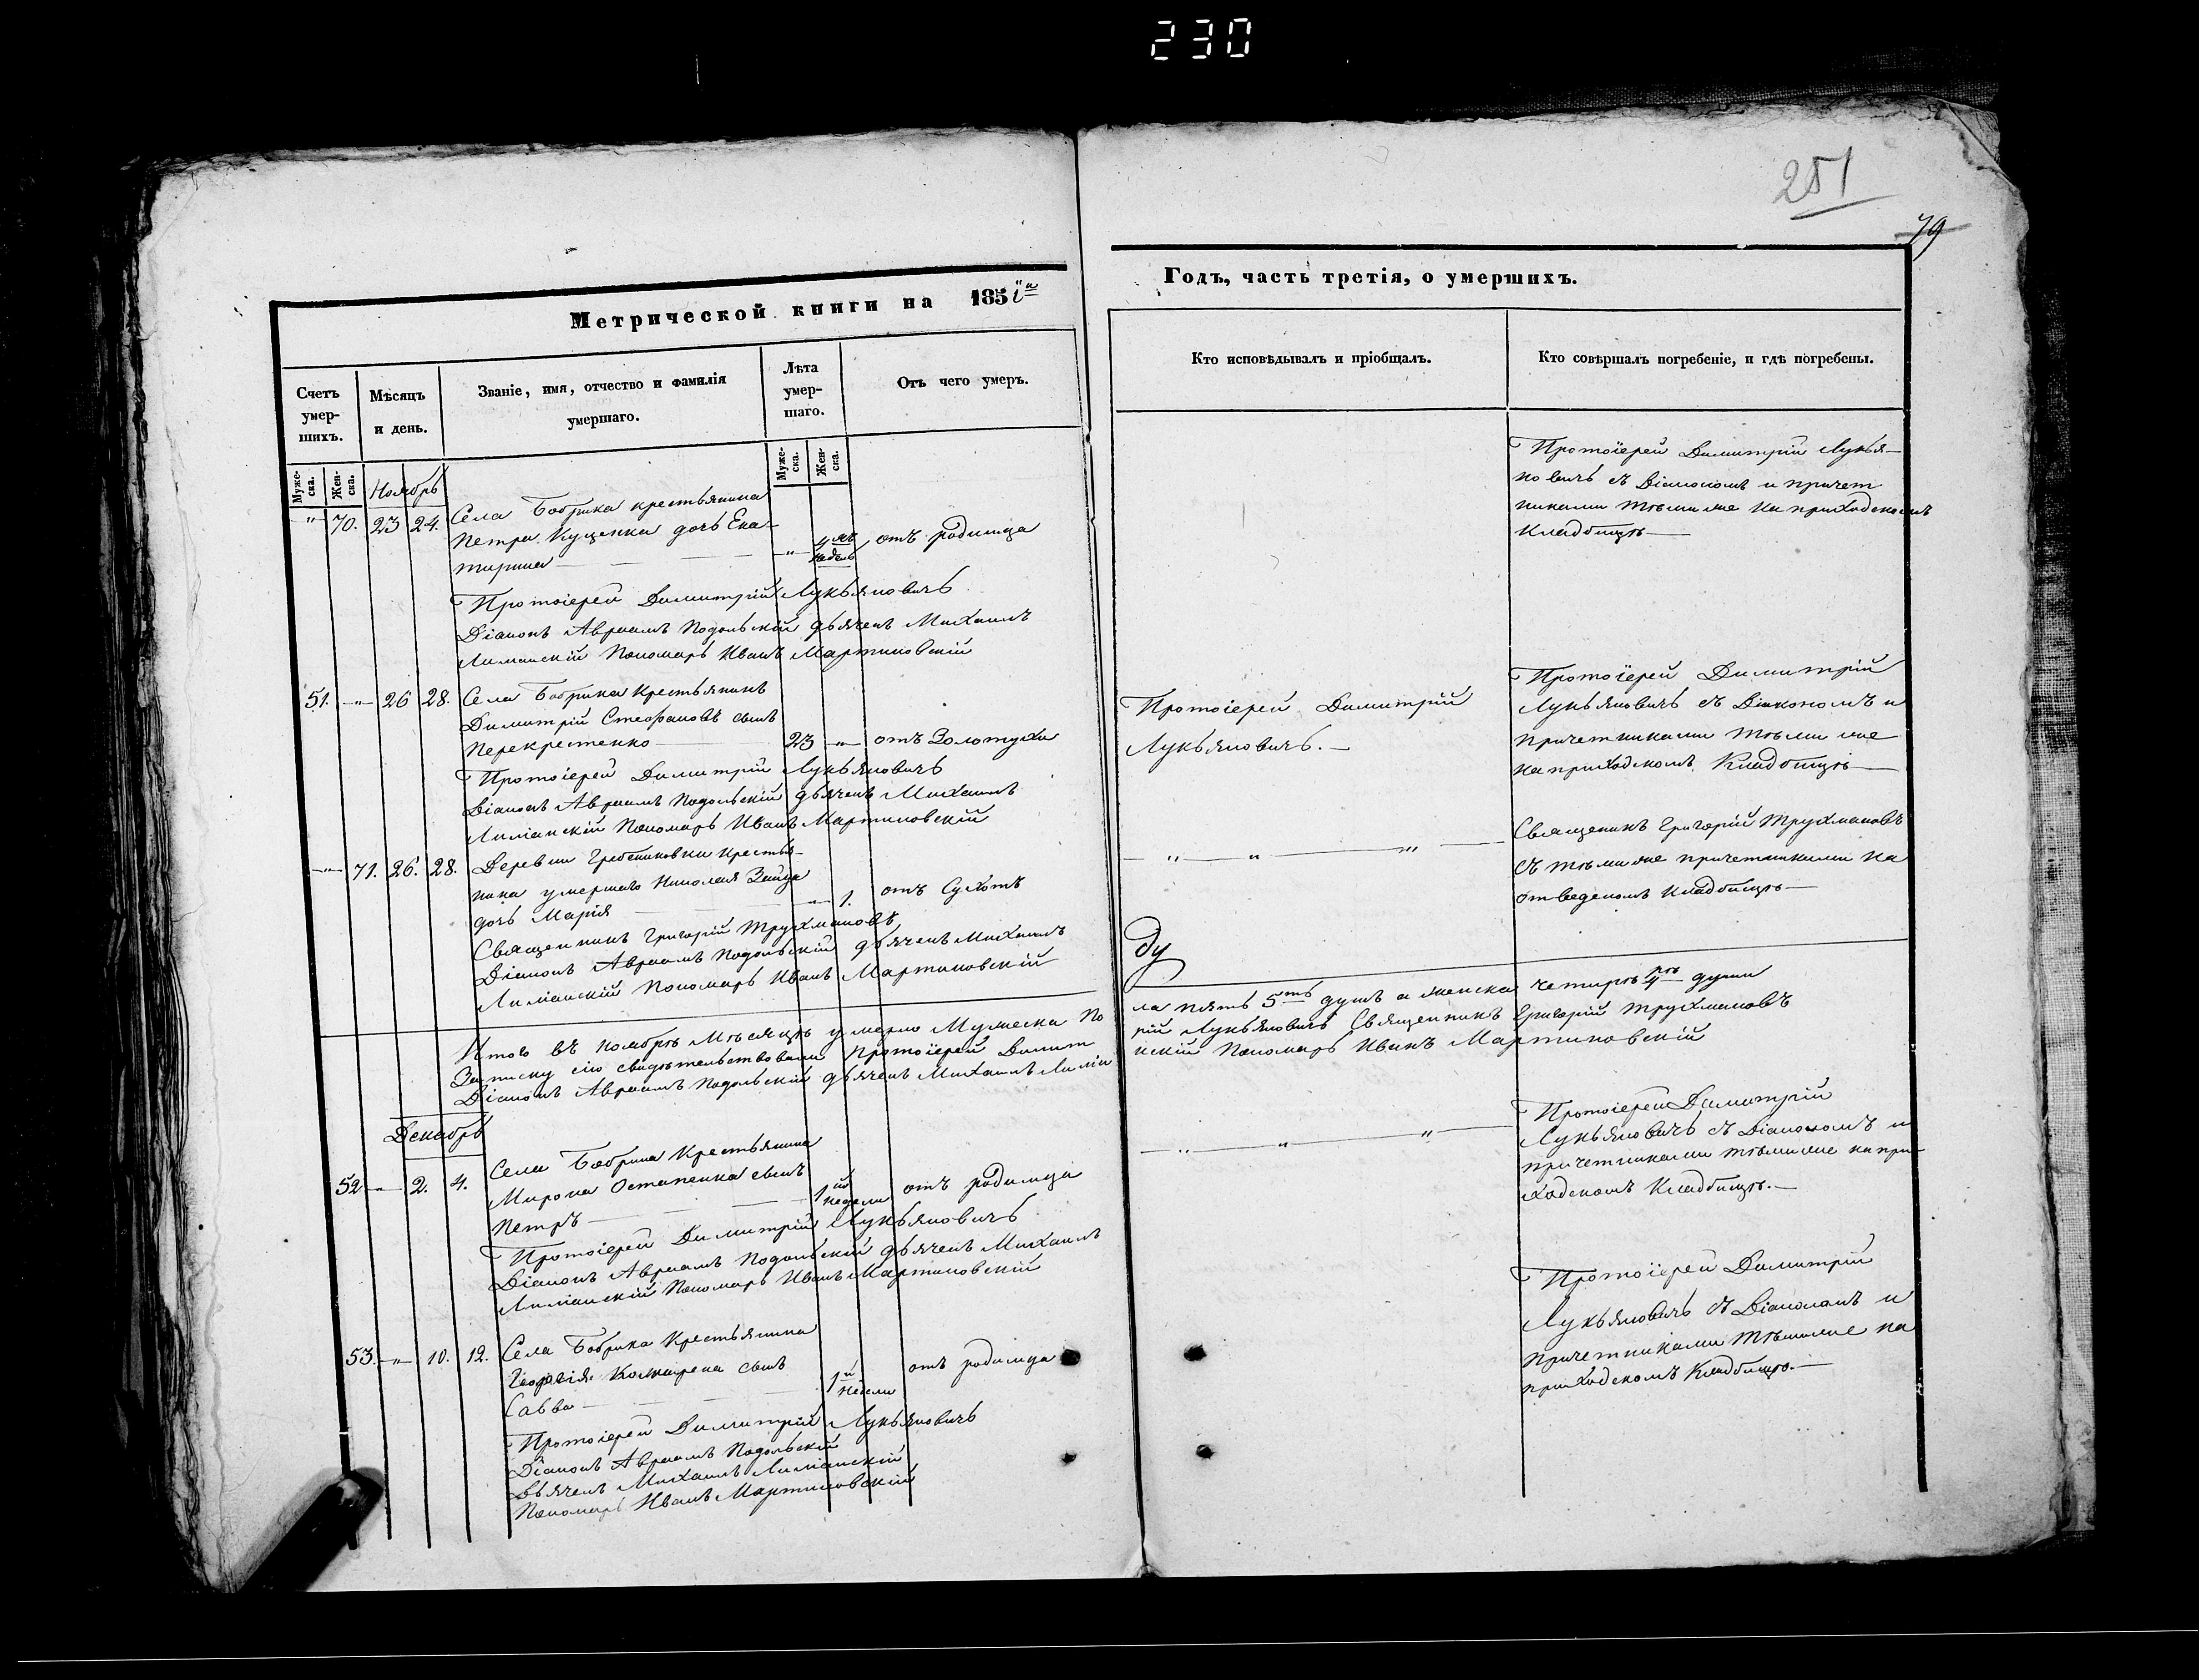 230
251
79
Метрической книги на 185
Счетъ умер-шихъ.
Мѣсяцъ и день.
Званіе, имя, отчество и фамилія
умершаго.
Лѣта умер-шаго.
Отъ чего умеръ.
Муже-ска. Жен-ска.
Муже-ска. Жен-ска.
Ноябрь
" 70. 23 24. Села Бобрика крестьянина
Петра Куценка дочь Ека-
терина " 4 недель отъ родимца
Протоіерей Димитрій Лукьяновичъ
Діаконъ Авраамъ Подольскій дьячекъ Михаилъ
Лиманскій Пономарь Иванъ Мартиновскій
51. " 26 28. Села Бобрика Крестьянинъ
Димитрій Стефановъ сынъ
Перекрестенко 23 " отъ Золотухи
Протоіерей Димитрій Лукьяновичъ
Діаконъ Авраамъ Подольскій дьячекъ Михаилъ
Лиманскій Пономарь Иванъ Мартиновскій
" 71. 26. 28. Деревни Гребениковки Крестья-
нина умершаго Николая Зайца
дочь Марія " 1. отъ Сухотъ
Священникъ Григорій Трухмановъ
Діаконъ Авраамъ Подольскій дьячекъ Михаилъ
Лиманскій Пономарь Иванъ Мартиновскій
Итого въ ноябрѣ Мѣсяцѣ умерло Мужеска По
Записку сію свидѣтельствовали Протоіерей Димит
Діаконъ Авраамъ Подольскій дьячекъ Михаилъ Лиман
Декабрь
52 " 2. 4. Села Бобрика Крестьянина
Мирона Остапенка сынъ
Петръ 1й недели отъ родимца
Протоіерей Димитрій Лукьяновичъ
Діаконъ Авраамъ Подольскій дьячекъ Михаилъ
Лиманскій Пономарь Иванъ Мартиновскій
53. " 10. 12. Села Бобрика Крестьянина
Георгія сынъ
Савва 1й недели отъ родимца
Протоіерей Димитрій Лукьяновичъ
Діаконъ Авраамъ Подольскій
Дьячекъ Михаилъ Лиманскій
Пономарь Иванъ Мартиновскій
Годъ, часть третія, о умершихъ.
Кто исповѣдывалъ и пріобщалъ.
Кто совѣршалъ погребеніе, и гдѣ погребены.
Протоіерей Димитрій Лукья-
новичъ съ Діакономъ и причет
никами тѣми же на приходскомъ
Кладбищѣ
Протоіерей Димитрій
Лукьяновичъ.
Протоіерей Димитрій
Лукьяновичъ съ Діакономъ и
причетниками тѣми же
на приходскомъ Кладбищѣ
" " "
Священникъ Григорій Трухмановъ
съ тѣми же причетниками на
отведеномъ Кладбищѣ
ду
ла пять 5ть душъ а женска четырѣ 4рѣ души
рій Лукьяновичъ Священникъ Григорій Трухмановъ
нскій Пономарь Иванъ Мартиновскій
" " "
Протоіерей Димитрій
Лукьяновичъ съ Діакономъ и
причетниками тѣми же на при-
ходскомъ Кладбищѣ.
Протоіерей Димитрій
Лукьяновичъ съ Діакономъ и
причетниками тѣми же на
приходскомъ Кладбищѣ.